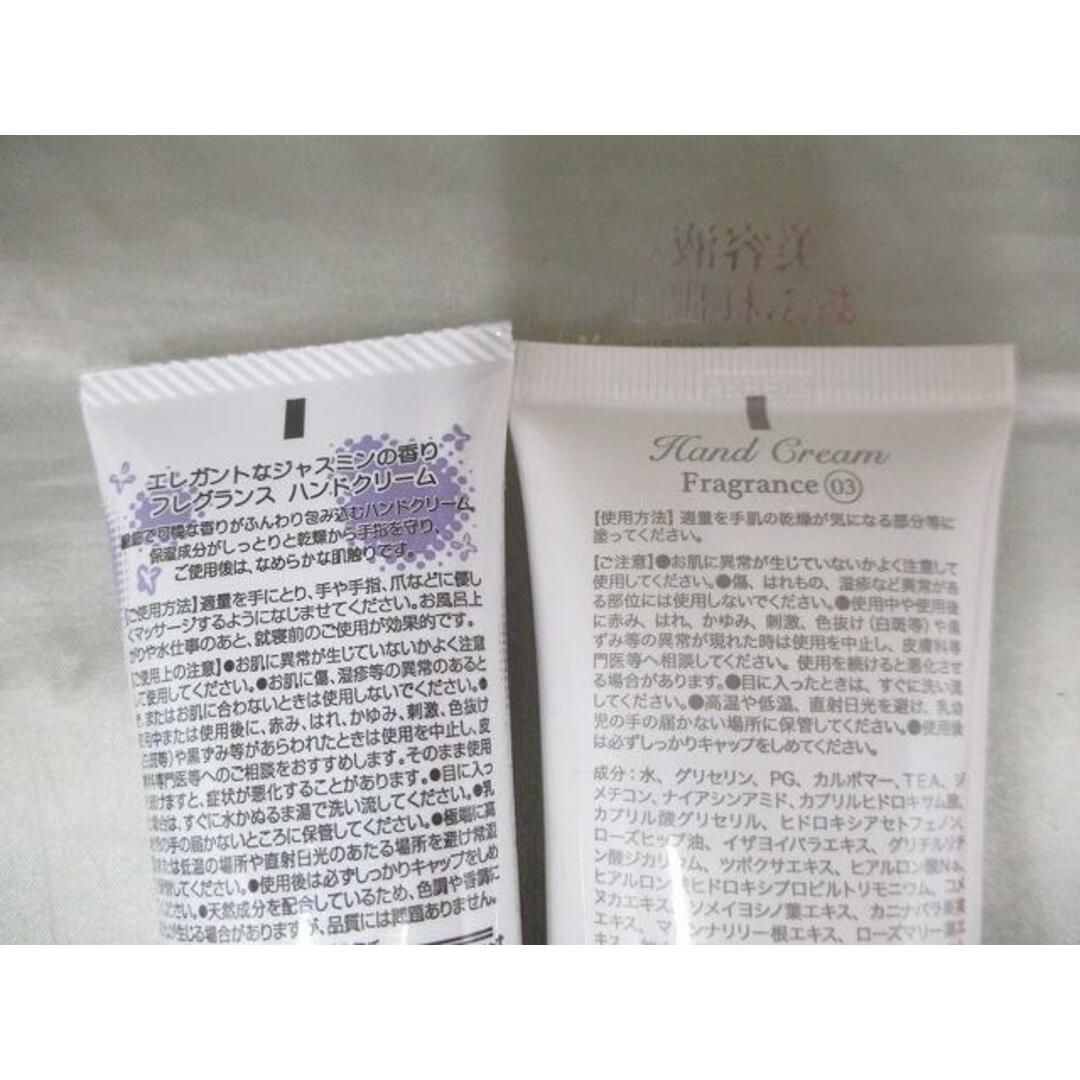 美容液
エレガントなジャスミンの香り
フレグランス ハンドクリーム
で可憐な香りがふんわり包み込むハンドクリーム。
保湿成分がしっとりと乾燥から手指を守り、
ご使用後は、なめらかな肌触りです。
【ご使用方法】適量を手にとり、手や手指、爪などに優し
くマッサージするようになじませてください。お風呂上
がりや水仕事のあと、就寝前のご使用が効果的です。
【ご使用上の注意】●お肌に異常が生じていないかよく注意
して使用してください。●お肌に傷、湿疹等の異常のあると
き、またはお肌に合わないときは使用しないでください。●
使用中または使用後に、赤み、はれ、かゆみ、刺激、色抜け
(白斑等)や黒ずみ等があらわれたときは使用を中止し、皮
膚科専門医等へのご相談をおすすめします。そのまま使用
続けますと、症状が悪化することがあります。●目に入っ
場合は、すぐに水かぬるま湯で洗い流してください。●乳
の手の届かないところに保管してください。●極端に高
または低温の場所や直射日光のあたる場所を避け常温
してください。●使用後は必ずしっかりキャップをしめ
ください。●天然成分を配合しているため、色調や香調に
が生じる場合がありますが、品質には問題ありません。
Hand Cream
Fragrance 03
【使用方法】適量を手肌の乾燥が気になる部分等に
塗ってください。
【ご注意】●お肌に異常が生じていないかよく注意して
使用してください。●傷、はれもの、湿疹など異常があ
る部位には使用しないでください。●使用中や使用後
に赤み、はれ、かゆみ、刺激、色抜け(白斑等)や黒
ずみ等の異常が現れた時は使用を中止し、皮膚科専
門医等へ相談してください。使用を続けると悪化させ
る場合があります。●目に入ったときは、すぐに洗い流
してください。●高温や低温、直射日光を避け、乳幼
児の手の届かない場所に保管してください。●使用後
は必ずしっかりキャップをしめてください。
成分：水、グリセリン、PG、カルボマー、TEA、ジ
メチコン、ナイアシンアミド、カプリルヒドロキサム酸、
カプリル酸グリセリル、ヒドロキシアセトフェノン、
ローズヒップ油、イザヨイバラエキス、グリチルリチ
ン酸ジカリウム、ツボクサエキス、ヒアルロン酸Na、
ヒアルロン酸ヒドロキシプロピルトリモニウム、コメ
ヌカエキス、ソメイヨシノ葉エキス、カニナバラ果実
エキス、マドンナリリー根エキス、ローズマリー葉エ